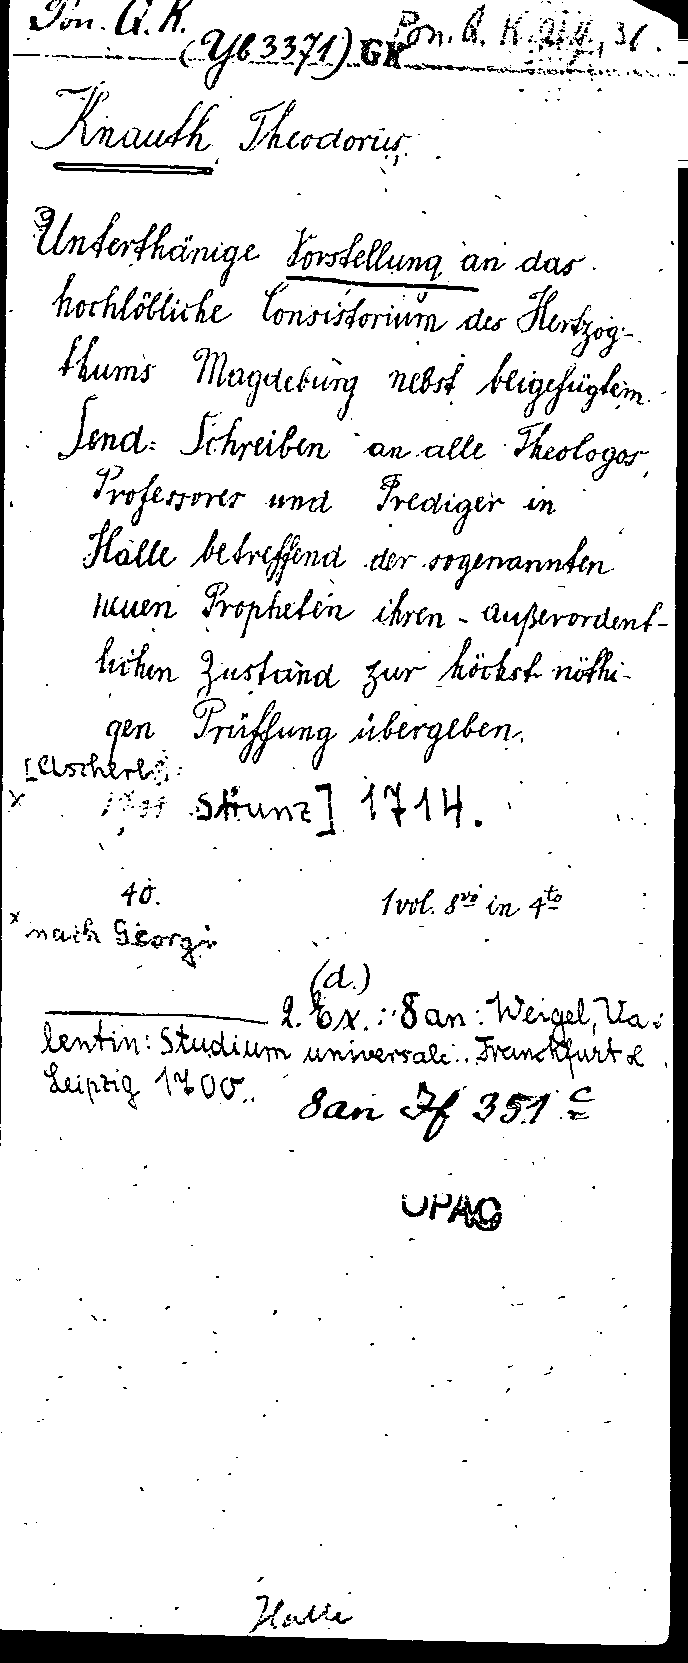 Pon. A. K.
(Yb 3371) GK Pon. A. K.
Knauth, Theodorus,
Unterthänige Vorstellung an das
hochlöbliche Consistorium des Hertzog-
thums Magdeburg nebst beigefügtem
Send-Schreiben an alle Theologos,
Professores und Prediger in
Halle betreffend der sogenannten
neuen Propheten ihren außerordent-
lichen Zustand zur höchst nöthi-
gen Prüffung übergeben.
[Aschersl.:
x Strunz] 1714.
40. 1 vol. 8vo in 4to
x nach Georgi
(d.)
2. Ex.: 8 an: Weigel, Va-
lentin: Studium universale. Franckfurt &
Leipzig 1700.
8 an If 351 c
OPAC
Halle